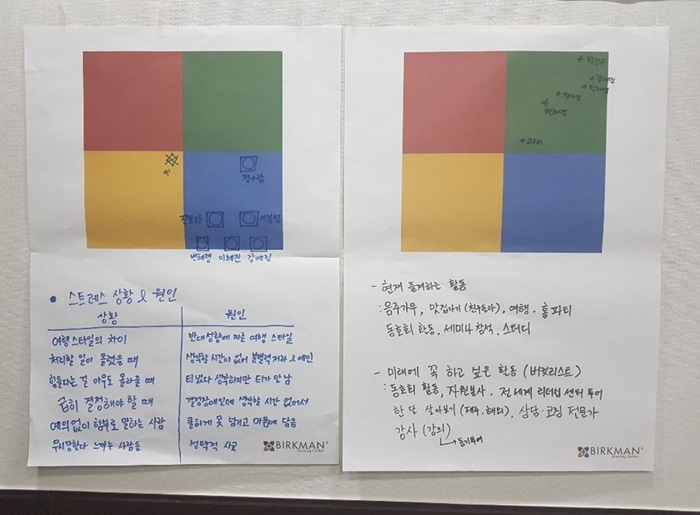 스트레스 상황 & 원인
상황
원인
여행스타일의 차이
반대성향에 따른 여행 스타일
처리할 일이 몰렸을 때
생각할 시간이 없어 분별력 저하 & 예민
힘들다는 걸 아무도 몰라줄 때
티냈다 생각하지만 티가 안 남
급히 결정해야 할 때
결정장애인데 생각할 시간 없어서
예의없이 함부로 말하는 사람
쿨하게 못 넘기고 마음에 담음
무시당한다 느끼는 사람들
선택적 사고
BIRKMAN
- 현재 즐겨하는 활동
: 음주가무, 맛집가기 (친구들과), 여행, 홈파티
동호회 활동, 세미나 참석, 스터디
- 미래에 꼭 하고 싶은 활동 (버킷리스트)
: 동호회 활동, 자원봉사, 전세계 리더십 센터 투어
한 달 살아보기 (제주, 해외), 상담·코칭 전문가
강사 (강의)
동기부여
BIRKMAN